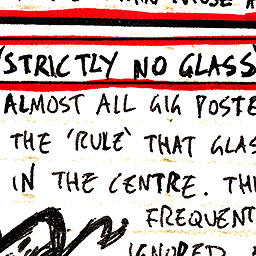 'STRICTLY NO GLASS'
ALMOST ALL GIG POSTE
THE 'RULE' THAT GLAS
IN THE CENTRE. TH
FREQUENT
IGNORED